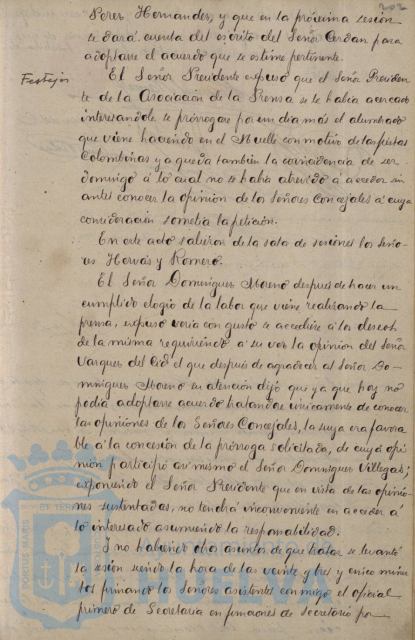 202
Perez Hernandez, y que en la próxima sesión
se dará cuenta del escrito del Señor Cerdan para
adoptarse el acuerdo que se estime pertinente.
Festejos
El Señor Presidente expuso que el Señor Presiden-
te de la Asociación de la Prensa se le había acercado
interesándole se prórrogase por un dia más el alumbrado
que viene haciendo en el Muelle con motivo de las fiestas
Colombinas y a queda también la coincidencia de ser
domingo á lo cual no se había atrevido á acceder sin
antes conocer la opinión de los Señores Concejales á cuya
consideración sometía la petición.
En este acto salieron de la sala de sesiones los Seño-
res Hervás y Romero.
El Señor Dominguez Moreno despues de hacer un
cumplido elogio de la labor que viene realizando la
prensa, expuso veria con gusto se accediese á los deseos
de la misma requiriendo á su vez la opinión del Señor
Vazques del Cid el que después de agradecer al Señor Do-
minguez Moreno su atención dijó que ya que hoy no
podía adoptarse acuerdo tratandose unicamente de conocer
las opiniones de los Señores Concejales, la suya era favora-
ble á la concesión de la prórroga solicitada, de cuya opi-
nión participó asi mismo el Señor Dominguez Villegas;
exponiendo el Señor Presidente que en vista de las opinio-
nes sustentadas, no tendrá inconveniente en acceder á
lo interesado asumiendo la responsabilidad.
Y no habiendo otro asunto de que tratar se levantó
la sesión siendo la hora de las veinte y tres y cinco minu-
tos firmando los Señores asistentes conmigo el oficial
primero de Secretaria en funciones de secretario por
PORTUS MARIS ET TERRAE
HUELVA